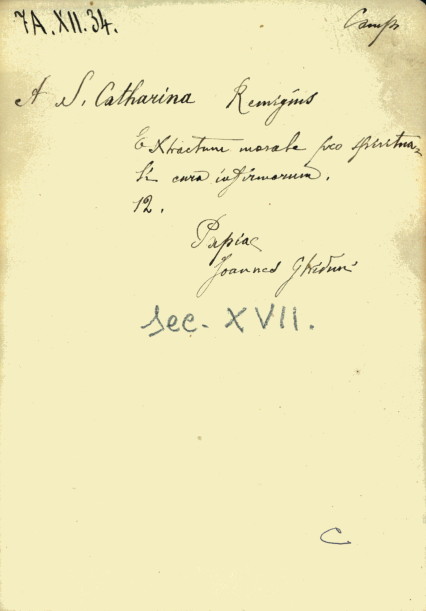 7A.XII.34.
Camp
A S. Catharina Remigius
Extractum morale pro spiritua-
li cura infirmorum.
12.
Papiae
Joannes Ghidini
sec. XVII.
C